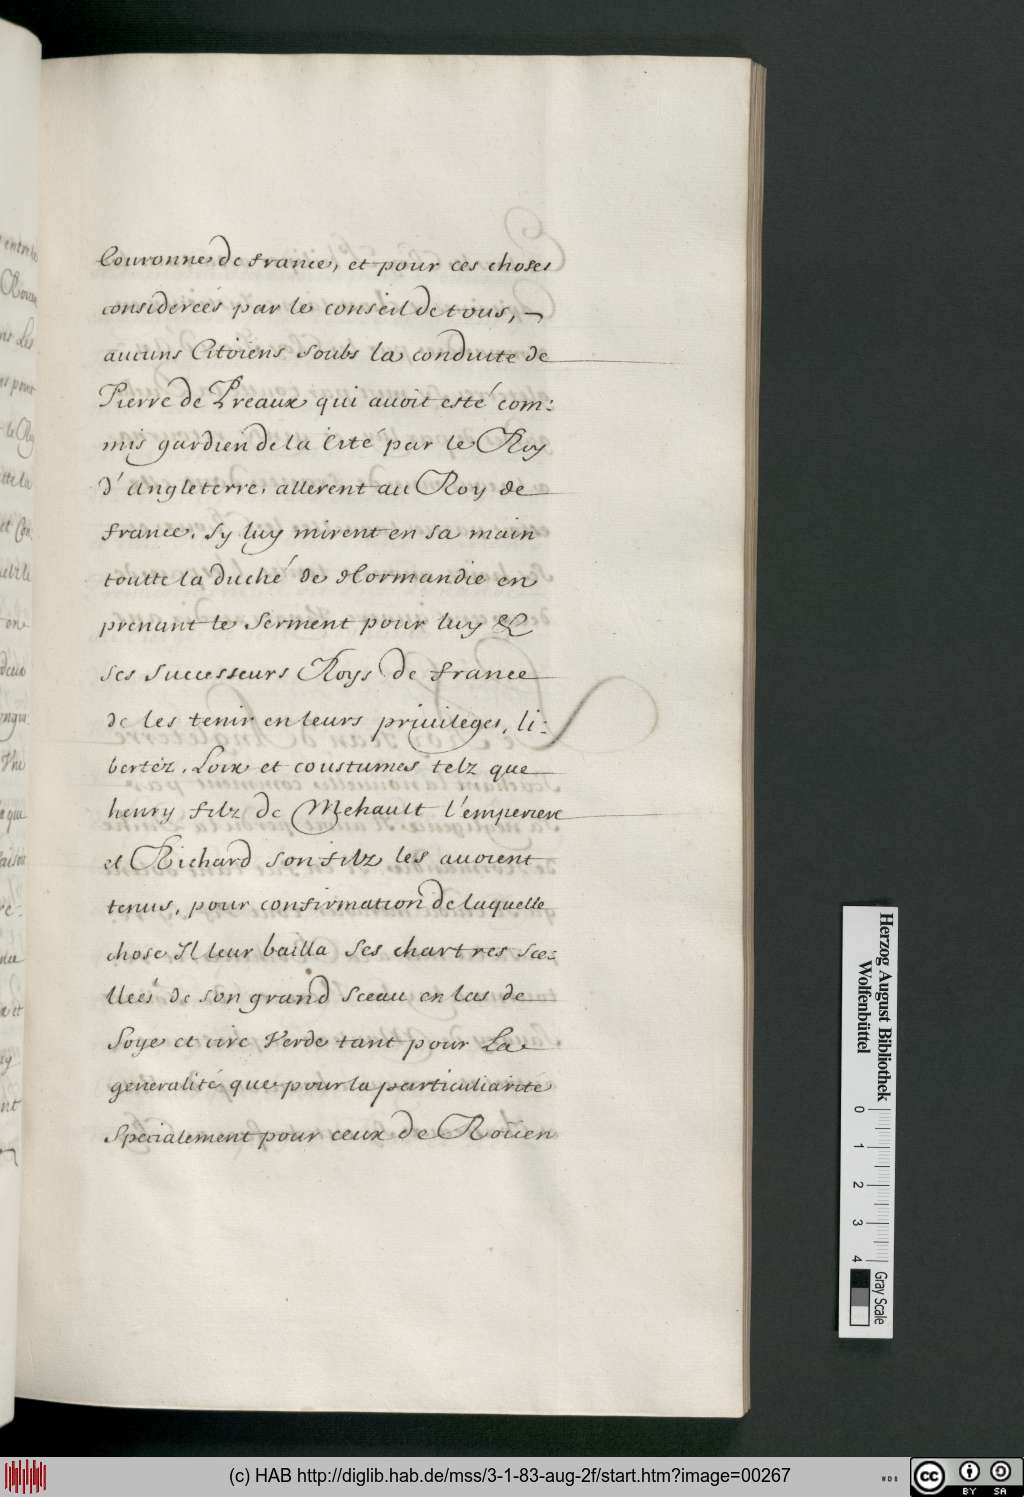 Couronne de france, et pour ces choses
considereés par le conseil de tous, ¬
aucuns Citoiens soubs la conduite de
Pierre de Preaux qui auoit esté com:
mis gardien de la Cité par le Roy
d'Angleterre, allerent au Roy de
france. Sy luy mirent en sa main
toutte la duché de Normandie en
prenant le Serment pour luy &
ses successeurs Roys de france
de les tenir en leurs priuileges, li:
bertéz, Loix et coustumes telz que
henry filz de Mehault l'emperiere
et Richard son filz les auoient
tenus, pour confirmation de laquelle
chose Il leur bailla ses chartres sce:
lleés de son grand sceau en las de
Soye et cire Verde tant pour La
generalité que pour la particuliarité
Specialement pour ceux de Roüen
Herzog August Bibliothek
Wolfenbüttel
0 1 2 3 4
Gray Scale
(c) HAB http://diglib.hab.de/mss/3-1-83-aug-2f/start.htm?image=00267
WDB
cc BY SA